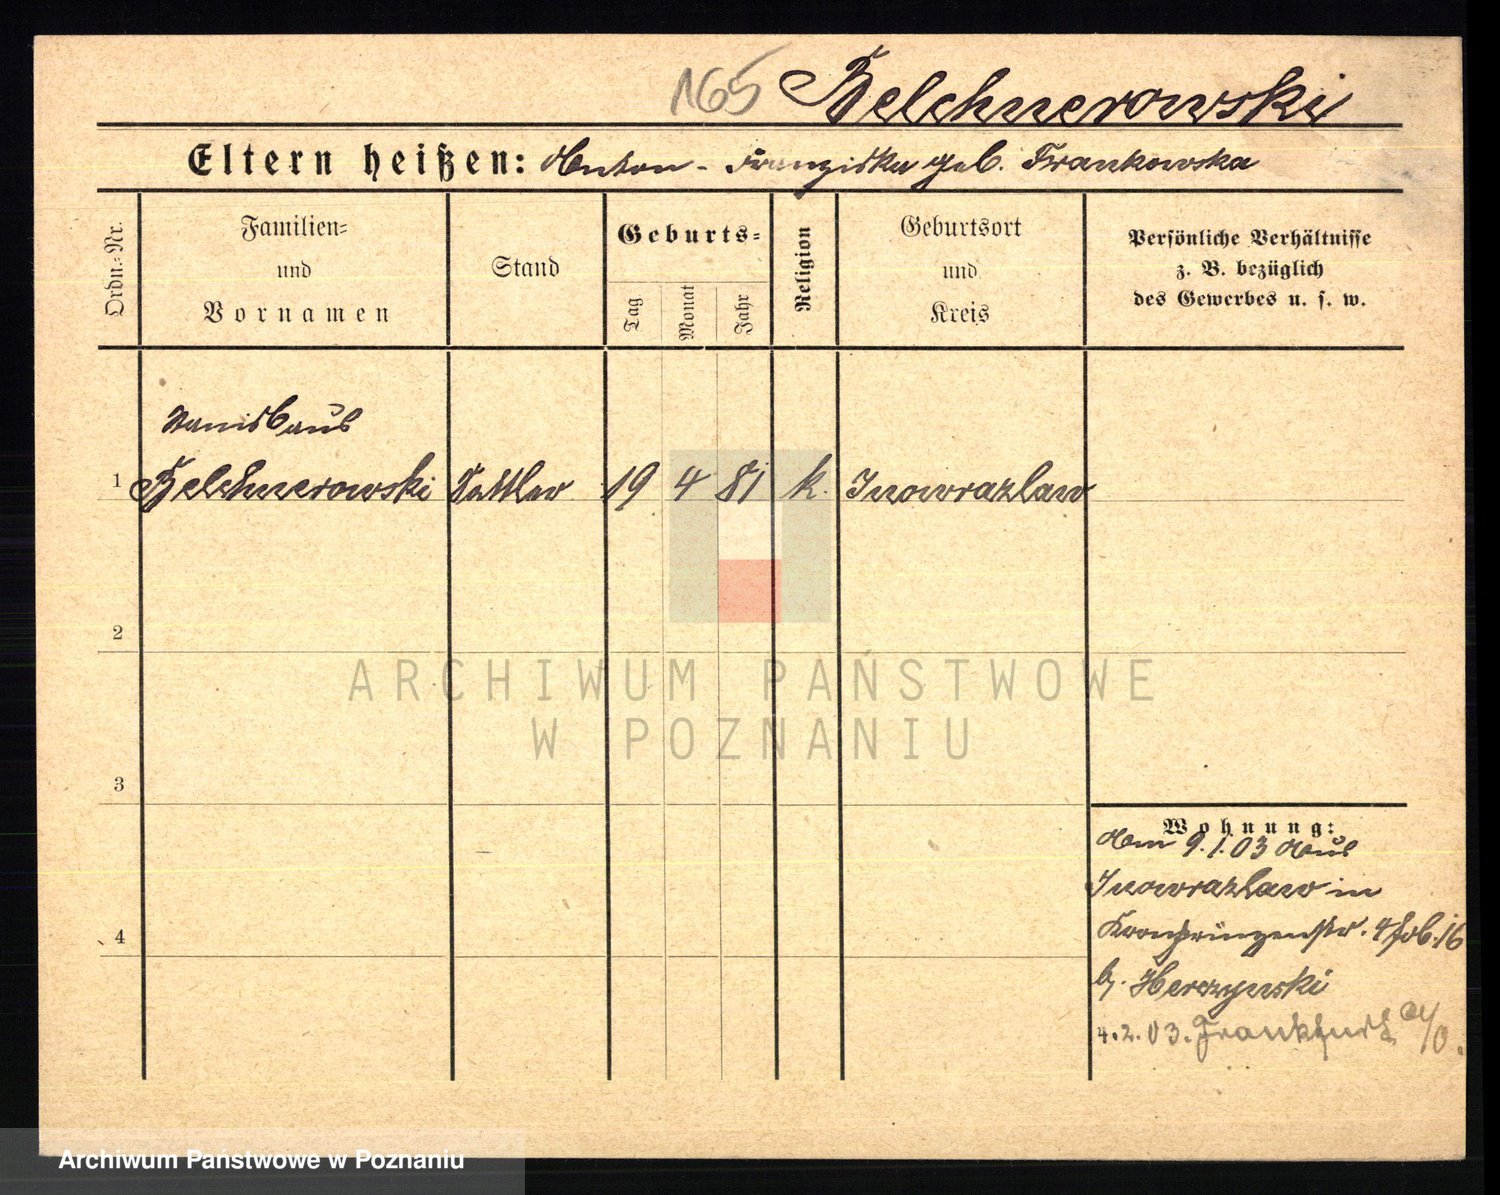 165 Belchnerowski
Eltern heißen: Anton - Franziska geb. Frankowska
Ordn.-Nr.
Familien-
und
Vornamen
Stand
Geburts-
Tag
Monat
Jahr
Religion
Geburtsort
und
Kreis
Persönliche Verhältnisse
z. B. bezüglich
des Gewerbes u. s. w.
Stanislaus
1 Belchnerowski Sattler 19 4 81 k. Inowrazlaw
2
3
4
Wohnung:
Am 9.1.03 Aus
Inowrazlaw in
Kronprinzenstr. 4
b. Herczynski
4.2.03. Frankfurt a/O.
ARCHIWUM PAŃSTWOWE
W POZNANIU
Archiwum Państwowe w Poznaniu